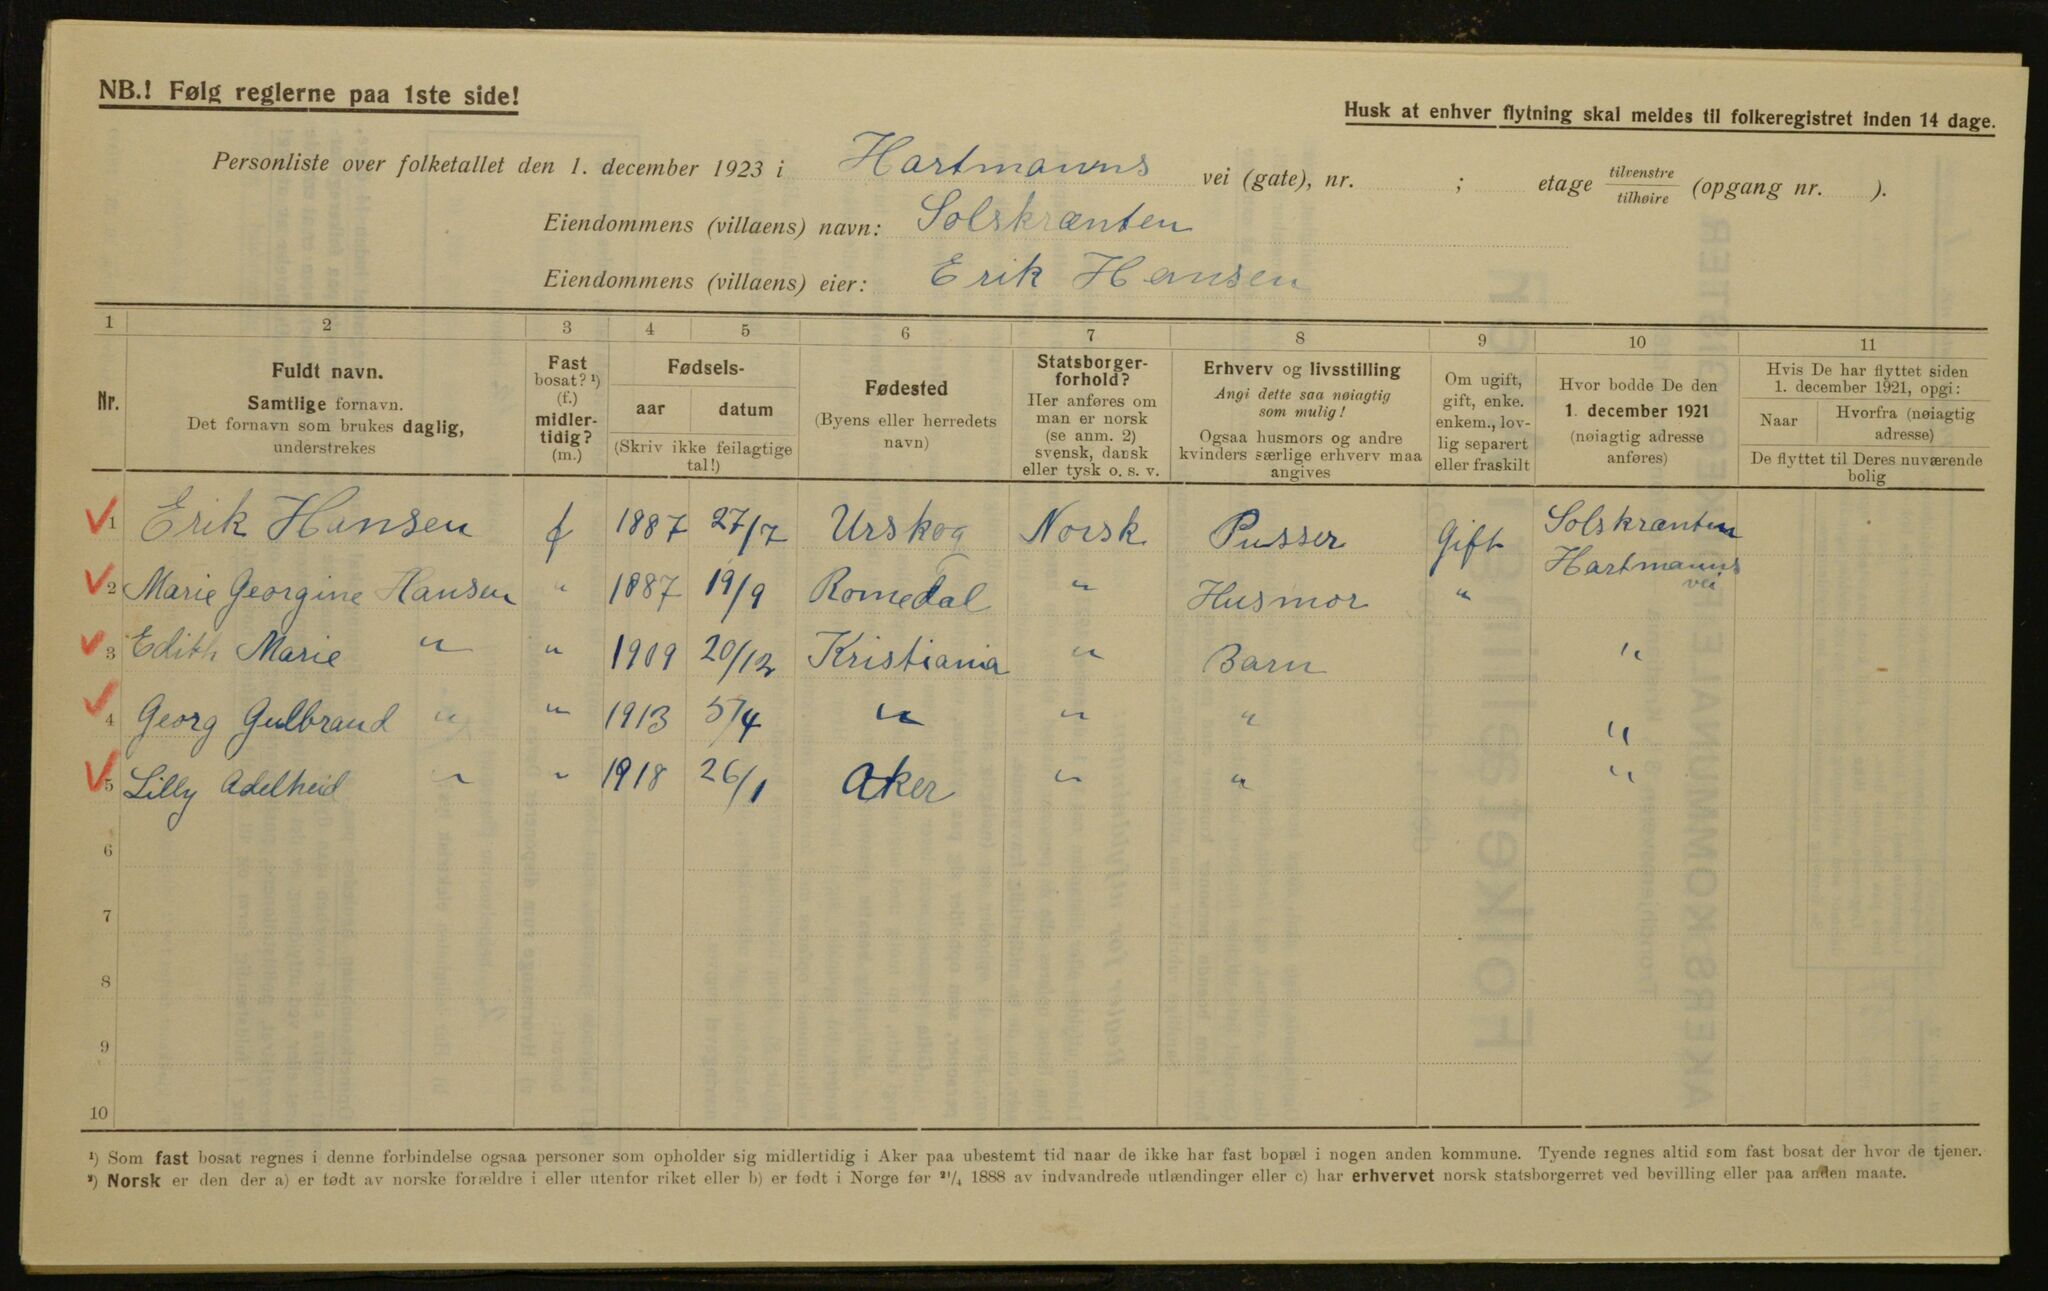 NB.! Følg reglerne paa 1ste side!
Husk at enhver flytning skal meldes til folkeregistret inden 14 dage.
Personliste over folketallet den 1. december 1923 i Hartmanns vei (gate), nr. ; etage tilvenstre/tilhøire (opgang nr. ).
Eiendommens (villaens) navn: Solskrænten
Eiendommens (villaens) eier: Erik Hansen
1 2 3 4 5 6 7 8 9 10 11
Nr.
Fuldt navn.
Samtlige fornavn.
Det fornavn som brukes daglig,
understrekes
Fast
bosat? ¹)
(f.)
midler-
tidig?
(m.)
Fødsels-
aar datum
(Skriv ikke feilagtige
tal!)
Fødested
(Byens eller herredets
navn)
Statsborger-
forhold?
Her anføres om
man er norsk
(se anm. 2)
svensk, dansk
eller tysk o. s. v.
Erhverv og livsstilling
Angi dette saa nøiagtig
som mulig!
Ogsaa husmors og andre
kvinders særlige erhverv maa
angives
Om ugift,
gift, enke.
enkem., lov-
lig separert
eller fraskilt
Hvor bodde De den
1. december 1921
(nøiagtig adresse
anføres)
Hvis De har flyttet siden
1. december 1921, opgi:
Naar Hvorfra (nøiagtig
adresse)
De flyttet til Deres nuværende
bolig
1 Erik Hansen f 1887 27/7 Urskog Norsk Pusser Gift Solskrænten
Hartmanns
vei
2 Marie Georgine Hansen " 1887 19/9 Romedal " Husmor "
3 Edith Marie " " 1909 20/12 Kristiania " Barn "
4 Georg Gulbrand " " 1913 5/4 " " " "
5 Lilly Adelheid " " 1918 26/1 Aker " " "
6
7
8
9
10
¹) Som fast bosat regnes i denne forbindelse ogsaa personer som opholder sig midlertidig i Aker paa ubestemt tid naar de ikke har fast bopæl i nogen anden kommune. Tyende regnes altid som fast bosat der hvor de tjener.
²) Norsk er den der a) er født av norske forældre i eller utenfor riket eller b) er født i Norge før ²¹/₄ 1888 av indvandrede utlændinger eller c) har erhvervet norsk statsborgerret ved bevilling eller paa anden maate.